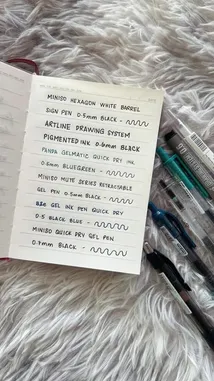 MINISO HEXAGON WHITE BARREL
SIGN PEN 0.5mm BLACK -
ARTLINE DRAWING SYSTEM
PIGMENTED INK 0.6mm BLACK
PANDA GELMATIC QUICK DRY INK
0.6mm BLUEGREEN -
MINISO MUTE SERIES RETRACTABLE
GEL PEN 0.5mm BLACK -
GEL INK PEN QUICK DRY
0.5 BLACK BLUE -
MINISO QUICK DRY GEL PEN
0.7mm BLACK -